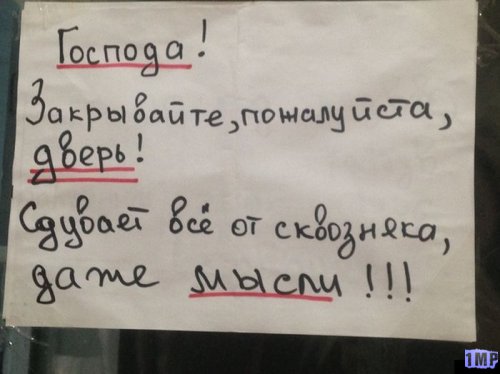 Господа!
Закрывайте, пожалуйста,
дверь!
Сдувает всё от сквозняка,
даже мысли!!!
1MP